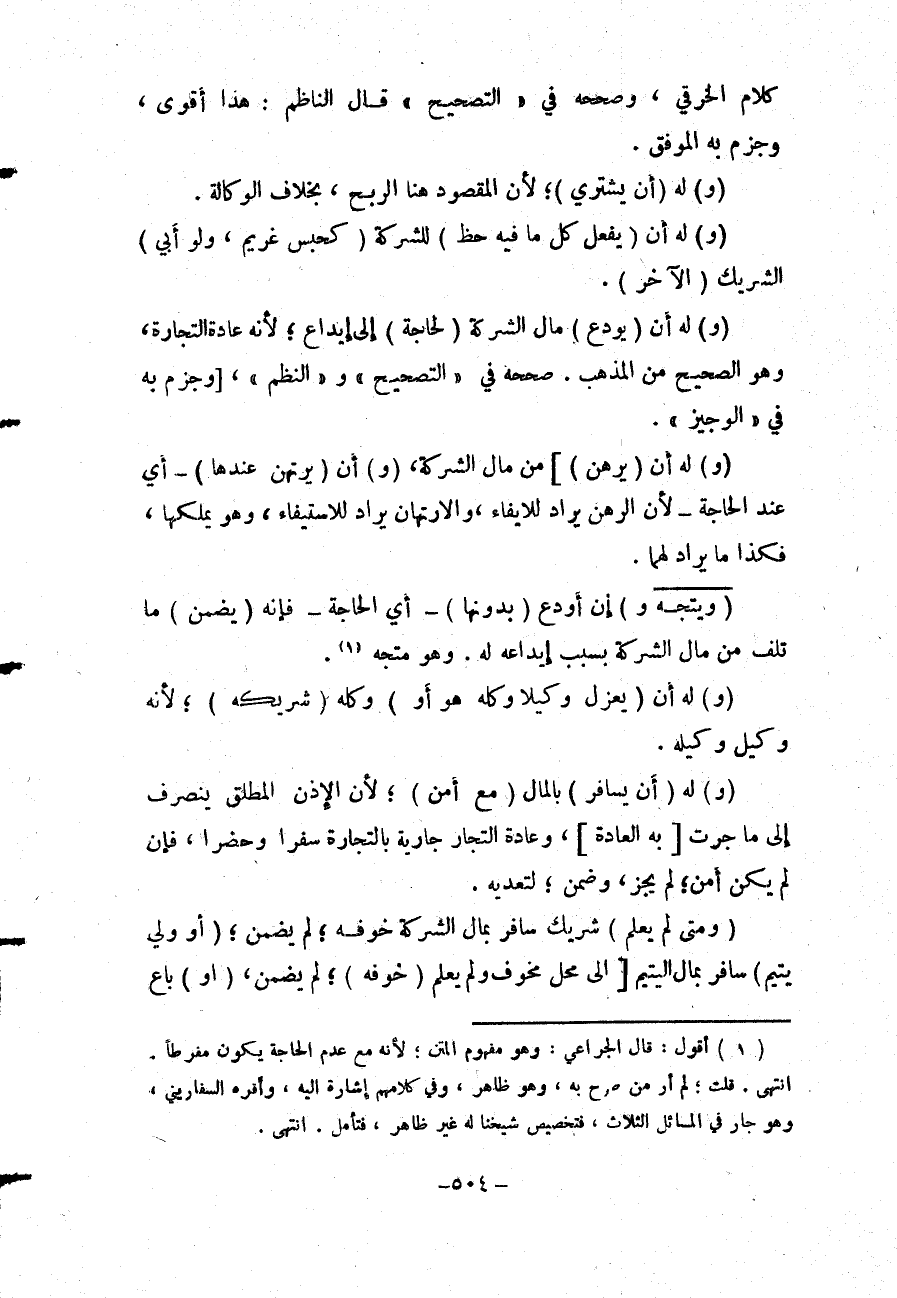 كلام الخرقي ، وصححه في « التصحيح » قال الناظم : هذا أقوى ،
وجزم به الموفق .
(و) له (أن يشتري )؛ لأن المقصود هنا الربح ، بخلاف الوكالة .
(و) له أن ( يفعل كل ما فيه حظ ) للشركة ( كحبس غريم ، ولو أبي )
الشريك ( الآخر ) .
(و) له أن ( يودع ) مال الشركة ( لحاجة ) إلى إيداع ؛ لأنه عادة التجارة،
وهو الصحيح من المذهب . صححه في « التصحيح » و « النظم » ، [وجزم به
في « الوجيز » .
(و) له أن ( يرهن ) ] من مال الشركة، (و) أن ( يرتهن عندها ) – أي
عند الحاجة – لأن الرهن يراد للايفاء ،والارتهان يراد للاستيفاء ، وهو يملكها ،
فكذا ما يراد لهما .
( ويتجه و ) إن أودع ( بدونها ) – أي الحاجة – فإنه ( يضمن ) ما
تلف من مال الشركة بسبب إيداعه له . وهو متجه (١) .
(و) له أن ( يعزل وكيلا وكله هو أو ) وكله ( شريكه ) ؛ لأنه
وكيل وكيله .
(و) له ( أن يسافر ) بالمال ( مع أمن ) ؛ لأن الإذن المطلق ينصرف
إلى ما جرت [ به العادة ] ، وعادة التجار جارية بالتجارة سفرا وحضرا ، فإن
لم يكن أمن؛ لم يجز ، وضمن ؛ لتعديه .
( ومتى لم يعلم ) شريك سافر بمال الشركة خوفه ؛ لم يضمن ؛ ( أو ولي
يتيم) سافر بمال اليتيم [ الى محل مخوف ولم يعلم ( خوفه ) ؛ لم يضمن ، ( او ) باع
( ١ ) أقول : قال الجراعي : وهو مفهوم المتن ؛ لأنه مع عدم الحاجة يكون مفرطاً .
انتهى . قلت ؛ لم أر من صرح به ، وهو ظاهر ، وفي كلامهم إشارة اليه ، وأقره السفاريني ،
وهو جار في المسائل الثلاث ، فتخصيص شيخنا له غير ظاهر ، فتأمل . انتهى .
–٥٠٤–